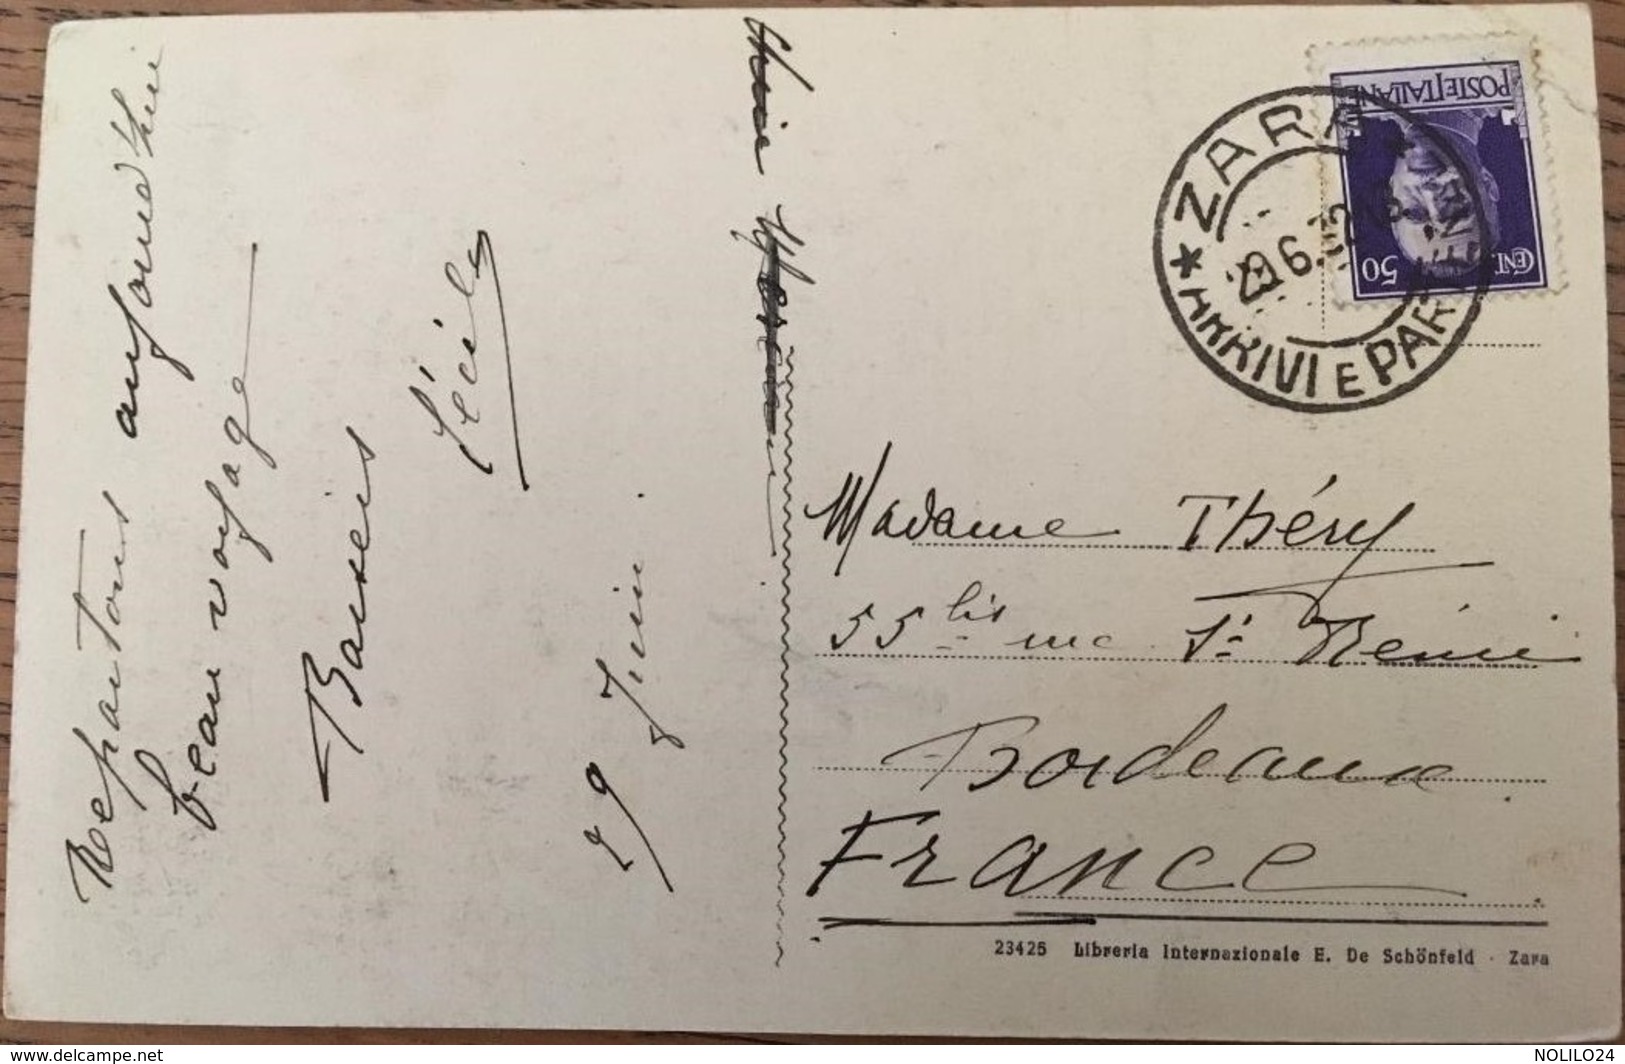 Repartons aujourd'hui
beau voyage
Baisers
Cécile
29 Juin
POSTE ITALIANE
CENT. 50
ZARA
ARRIVI E PARTENZE
29.6.32
Madame Théry
55 bis rue St Rémi
Bordeaux
France
23425 Libreria Internazionale E. De Schönfeld - Zara
www.delcampe.net
NOLILO24